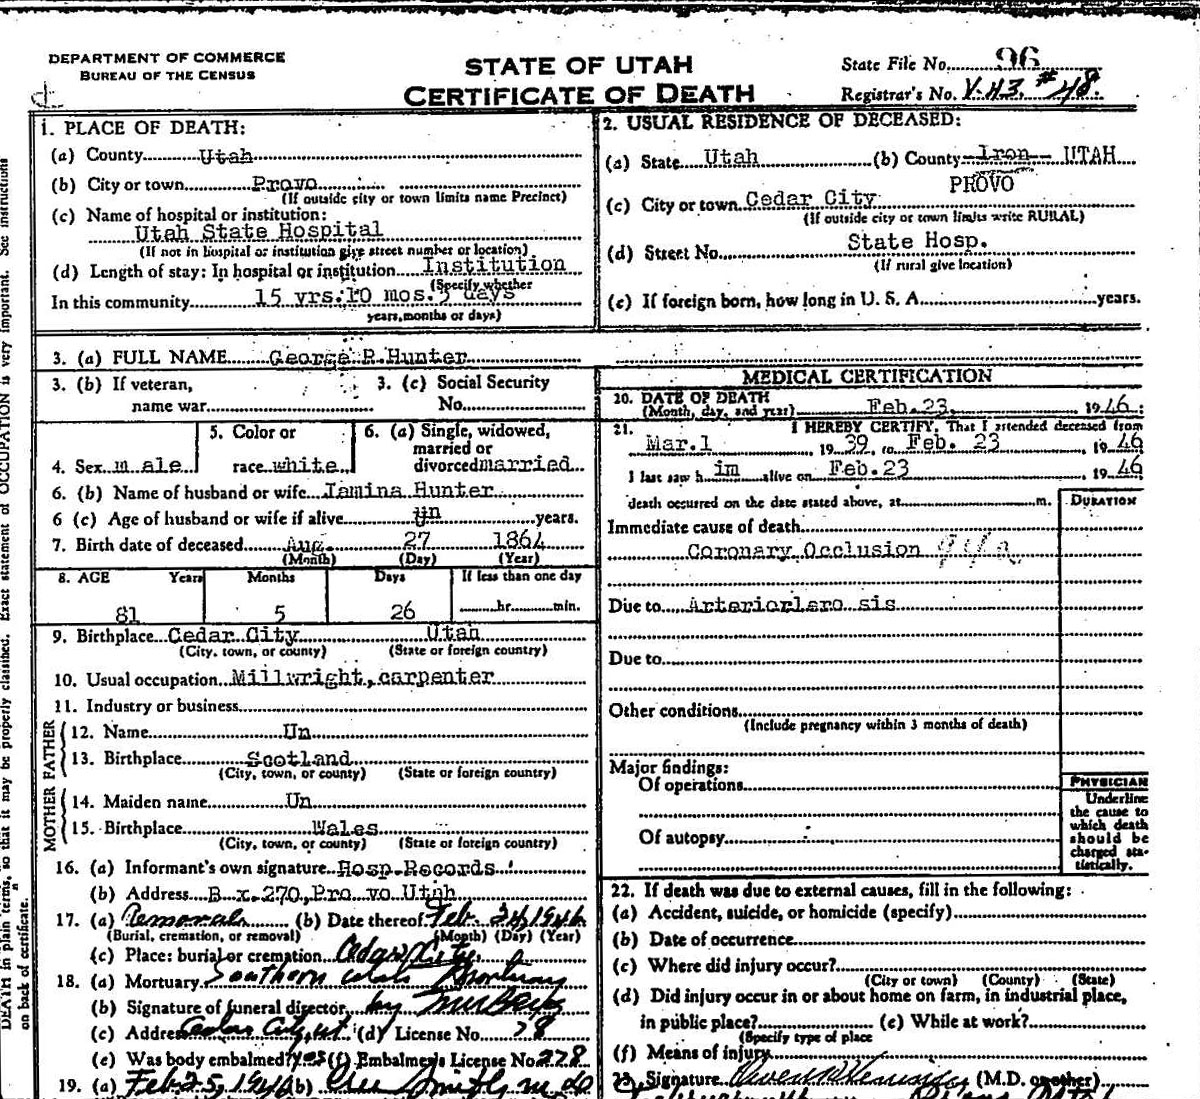 DEPARTMENT OF COMMERCE
BUREAU OF THE CENSUS
STATE OF UTAH
CERTIFICATE OF DEATH
State File No. 96
Registrar's No. V-43 #48
1. PLACE OF DEATH:
(a) County Utah
(b) City or town Provo
(If outside city or town limits name Precinct)
(c) Name of hospital or institution:
Utah State Hospital
(If not in hospital or institution give street number or location)
(d) Length of stay: In hospital or institution Institution
(Specify whether
In this community 15 yrs. 10 mos. 5 days
years, months or days)
2. USUAL RESIDENCE OF DECEASED:
(a) State Utah (b) County Iron UTAH
PROVO
(c) City or town Cedar City
(If outside city or town limits write RURAL)
(d) Street No. State Hosp.
(If rural give location)
(e) If foreign born, how long in U. S. A. years.
3. (a) FULL NAME George R. Hunter
3. (b) If veteran,
name war
3. (c) Social Security
No.
4. Sex m ale
5. Color or
race white
6. (a) Single, widowed,
married or
divorced married
6. (b) Name of husband or wife Jamina Hunter
6 (c) Age of husband or wife if alive Un years.
7. Birth date of deceased Aug. 27 1864
(Month) (Day) (Year)
8. AGE Years Months Days If less than one day
81 5 26 hr. min.
9. Birthplace Cedar City Utah
(City, town, or county) (State or foreign country)
10. Usual occupation Millwright, carpenter
11. Industry or business
FATHER
12. Name Un
13. Birthplace Scotland
(City, town, or county) (State or foreign country)
MOTHER
14. Maiden name Un
15. Birthplace Wales
(City, town, or county) (State or foreign country)
16. (a) Informant's own signature Hosp. Records
(b) Address B x. 270, Pro vo Utah
17. (a) Removal (b) Date thereof Feb. 24, 1946
(Burial, cremation, or removal) (Month) (Day) (Year)
(c) Place: burial or cremation Cedar City
18. (a) Mortuary Southern Utah Mortuary
(b) Signature of funeral director by
(c) Address Cedar City, Ut. (d) License No. 78
(e) Was body embalmed? Yes (f) Embalmer's License No. 278
19. (a) Feb 25, 1946 (b) Smith M.D.
MEDICAL CERTIFICATION
20. DATE OF DEATH
(Month, day, and year) Feb. 23, 1946
21. I HEREBY CERTIFY, That I attended deceased from
Mar. 1 1939, to Feb. 23 1946
I last saw h im alive on Feb. 23 1946
death occurred on the date stated above, at m.
DURATION
Immediate cause of death
Coronary Occlusion
Due to Arteriorlero sis
Due to
Other conditions
(Include pregnancy within 3 months of death)
Major findings:
Of operations
Of autopsy
PHYSICIAN
Underline
the cause to
which death
should be
charged sta-
tistically.
22. If death was due to external causes, fill in the following:
(a) Accident, suicide, or homicide (specify)
(b) Date of occurrence
(c) Where did injury occur?
(City or town) (County) (State)
(d) Did injury occur in or about home on farm, in industrial place,
in public place? (e) While at work?
(Specify type of place
(f) Means of injury
23. Signature (M.D. or other)
DEATH in plain terms, so that it may be properly classified. Exact statement of OCCUPATION is very important. See instructions
on back of certificate.